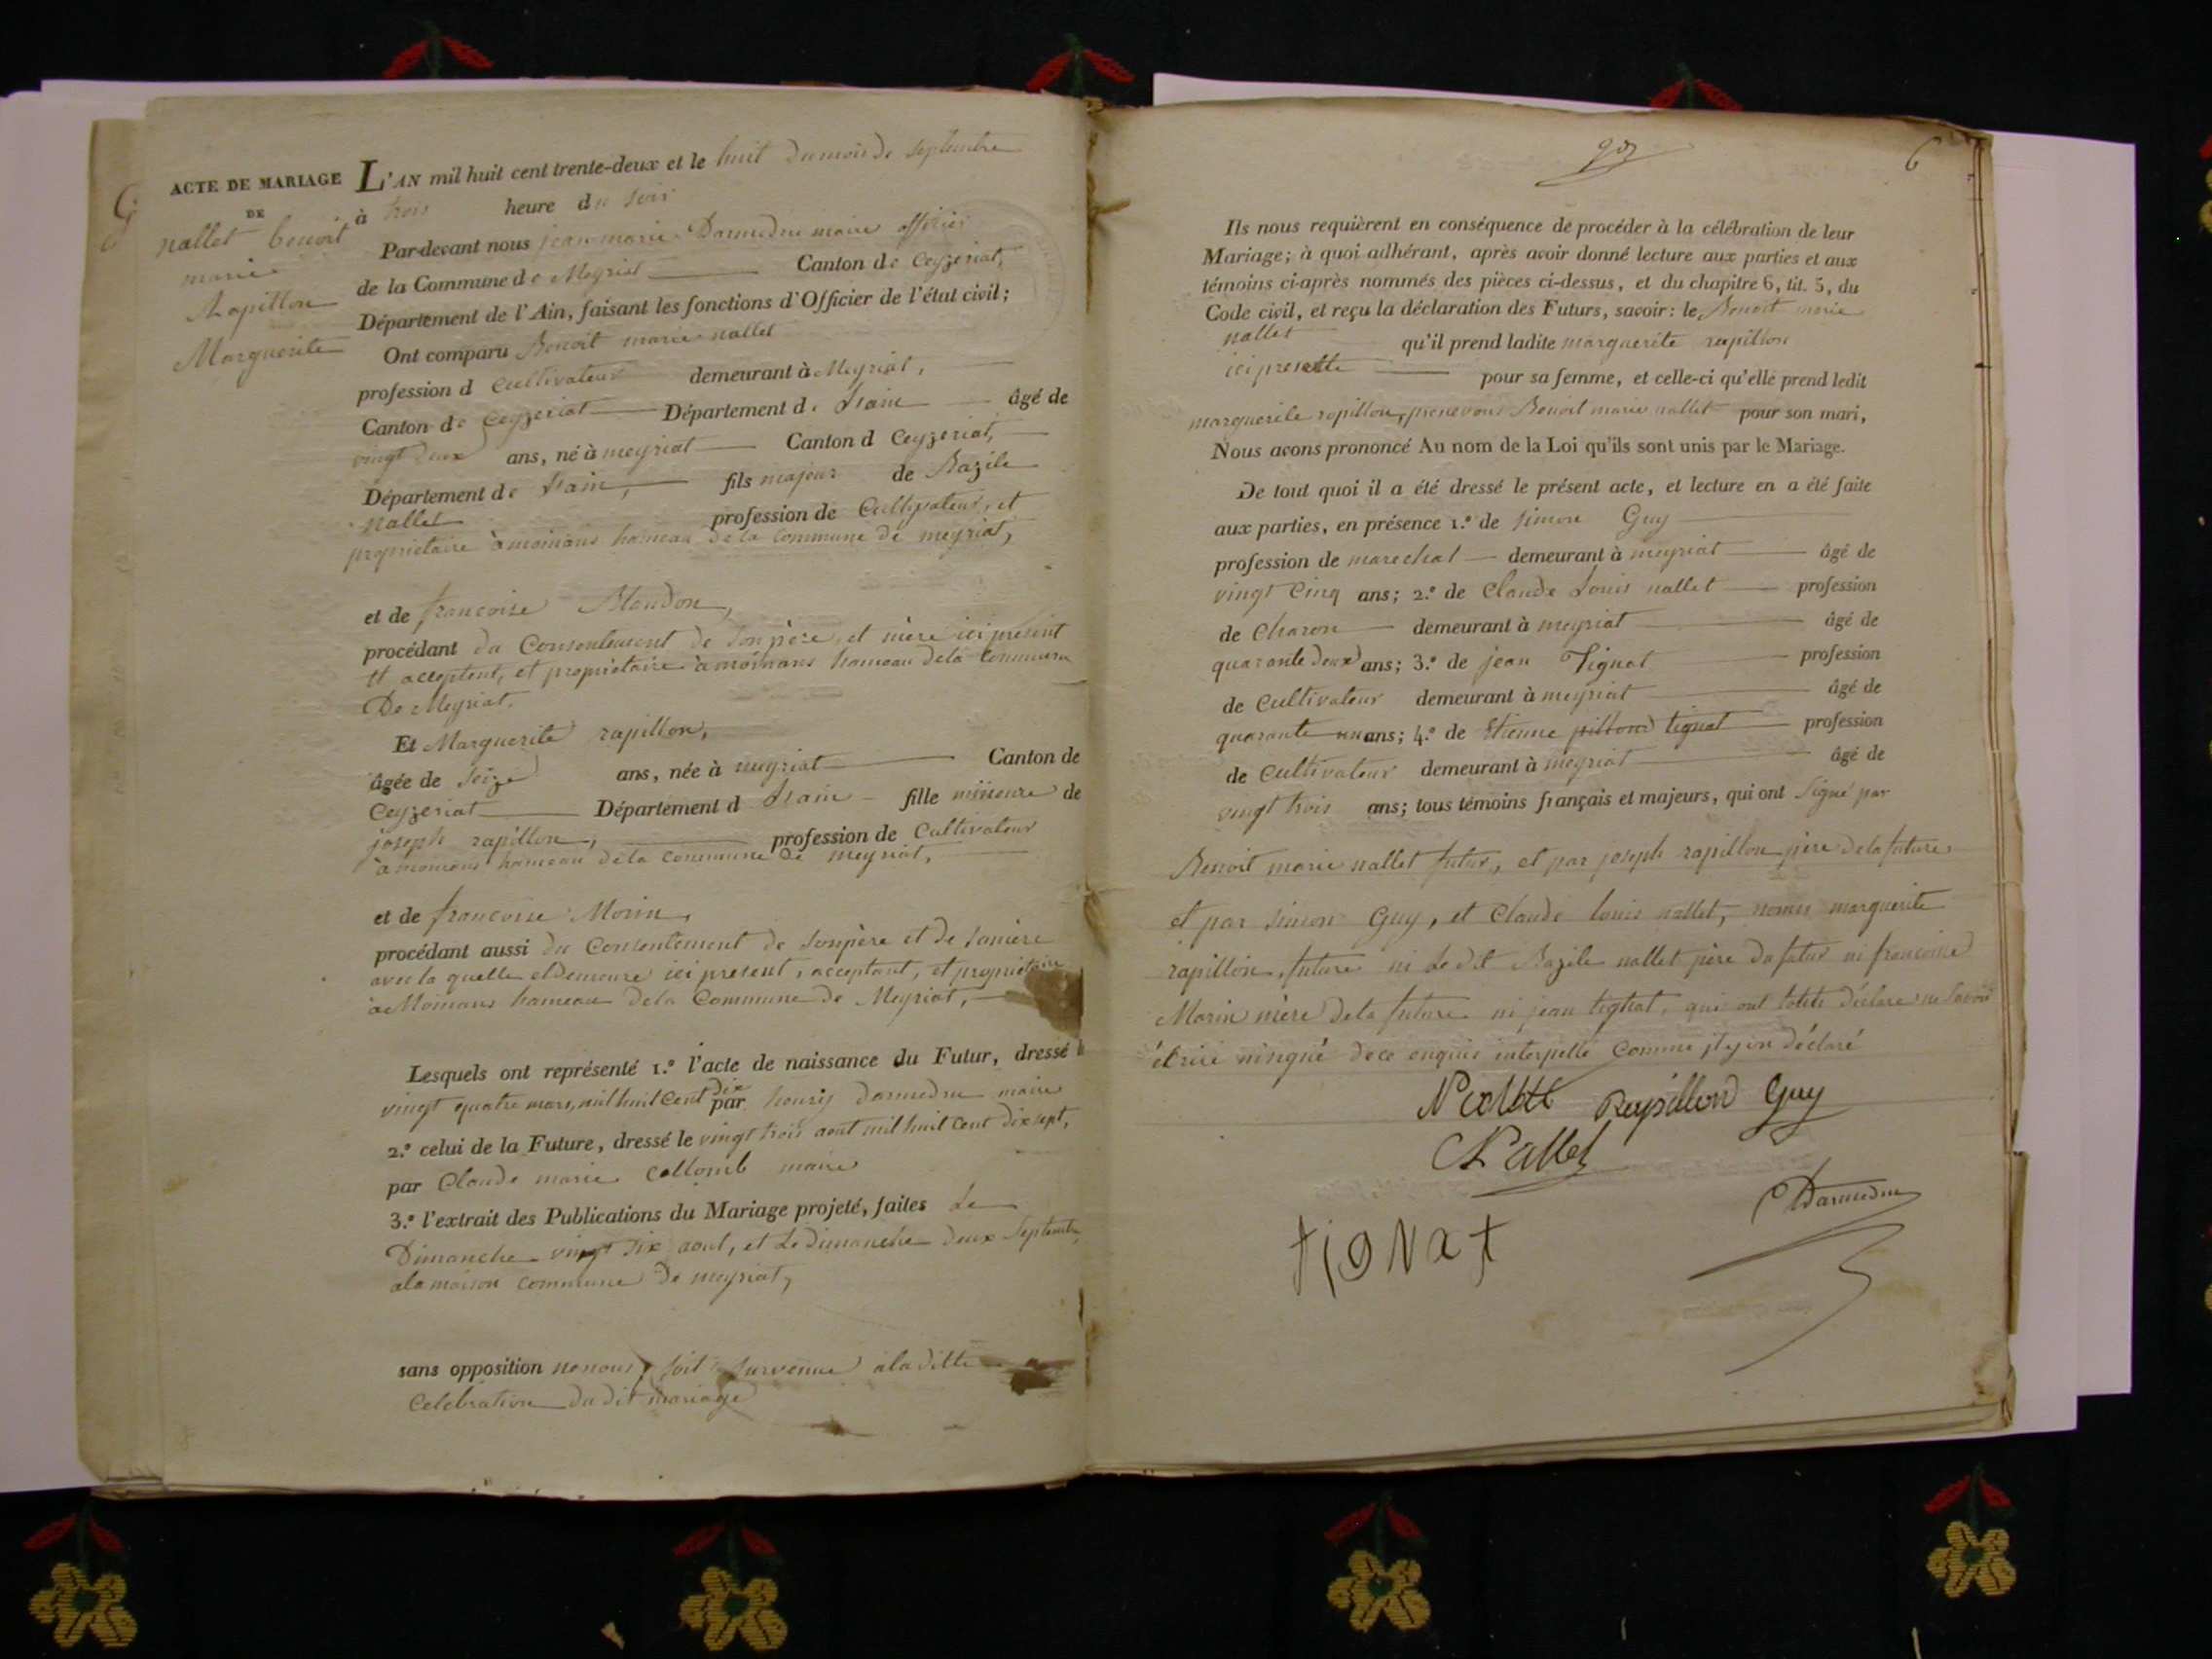 ACTE DE MARIAGE
DE
nallet benoit
marie
Rapillon
Marguerite
L'AN mil huit cent trente-deux et le huit du mois de septembre
à trois heure du soir
Par-devant nous jean-marie Darmedru maire officier
de la Commune de Meyriat Canton de Ceyzeriat,
Département de l'Ain, faisant les fonctions d'Officier de l'état civil;
Ont comparu Benoit marie nallet
profession d cultivateur demeurant à Meyriat,
Canton de Ceyzeriat Département de Lain âgé de
vingt deux ans, né à meyriat Canton d Ceyzeriat,
Département de Lain, fils majeur de Bazile
nallet profession de Cultivateur, et
propriétaire à moinans hameau de la commune de meyriat,
et de francoise Blondon,
procédant du Consentement de son père, et mère ici présent
et acceptent, et propriétaire à moinans hameau dela Commune
De Meyriat.
Et Marguerite rapillon,
âgée de Seize ans, née à meyriat Canton de
Ceyzeriat Département d Lain fille mineure de
joseph rapillon, profession de Cultivateur
à moinans hameau dela commune de meyriat,
et de francoise Morin,
procédant aussi du Consentement de son père et de sa mère
avec la quelle el demeure ici present, acceptant, et propriétaire
à Moinans hameau dela Commune de Meyriat,
Lesquels ont représenté 1.º l'acte de naissance du Futur, dressé
vingt quatre mars, mil huit cent dix par Darmedru maire
2.º celui de la Future, dressé le vingt trois aout mil huit cent dix sept,
par Claude marie Collomb maire
3.º l'extrait des Publications du Mariage projeté, faites Le
Dimanche vingt six aout, et Le dimanche deux Septembre
ala maison commune de meyriat,
sans opposition ne nous soit survenue à la ditte
Celebration du dit mariage
6
Ils nous requièrent en conséquence de procéder à la célébration de leur
Mariage; à quoi adhérant, après avoir donné lecture aux parties et aux
témoins ci-après nommés des pièces ci-dessus, et du chapitre 6, tit. 5, du
Code civil, et reçu la déclaration des Futurs, savoir: le Benoit marie
nallet qu'il prend ladite marguerite rapillon
ici presente pour sa femme, et celle-ci qu'elle prend ledit
marguerite rapillon, Benoit marie nallet pour son mari,
Nous avons prononcé Au nom de la Loi qu'ils sont unis par le Mariage.
De tout quoi il a été dressé le présent acte, et lecture en a été faite
aux parties, en présence 1.º de simon Guy
profession de marechal demeurant à meyriat âgé de
vingt Cinq ans; 2.º de Claude Louis nallet profession
de Charon demeurant à meyriat âgé de
quarante deux ans; 3.º de jean Tignat profession
de Cultivateur demeurant à meyriat âgé de
quarante un ans; 4.º de Etienne tignat profession
de Cultivateur demeurant à meyriat âgé de
vingt trois ans; tous témoins français et majeurs, qui ont signé par
Benoit marie nallet futur, et par joseph rapillon père dela future
et par simon Guy, et Claude louis nallet, marguerite
rapillon, future ni Le dit Bazile nallet père du futur ni francoise
Morin mère dela future ni jean tignat, qui ont déclaré ne savoir
écrire de ce enquis interpellé Comme déclaré
Nallet Rapillon Guy
Nallet
Darmedru
tignat